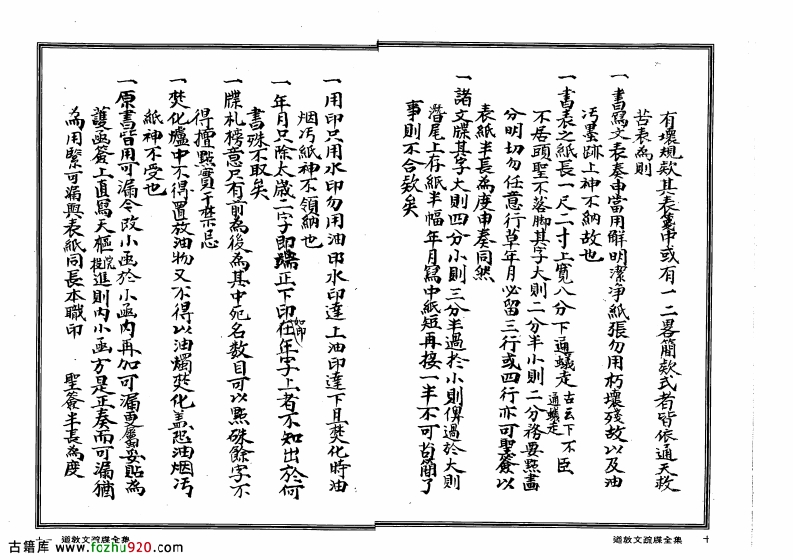 有壞規欵其表篆中或有一二畧簡欵式者皆依通天救
苦表為則
一書寫文表奏申當用鮮明潔净紙張勿用朽壞殘故以及油
汚墨跡上神不納故也
一書表之紙長一尺二寸上寬八分下通蟻走古云下不臣通蟻走
不居頭聖不落脚其字大則二分半小則二分務要點畫
分明切勿任意行草年月必留三行或四行亦可聖簽以
表紙半長為度申奏同然
一諸文牒其字大則四分小則三分半過於小則俾過於大則
潛尾上存紙半幅年月寫中紙短再接一半不可茍簡了
事則不合欵矣
一用印只用水印勿用油印水印達上油印達下且焚化時油
烟汚紙神不領納也
一年月只除太歲二字即端正下印如印在年字上者不知出於何
書殊不取矣
一牒札榜意只有前為後為其中宛名數目可以點硃餘字不
得擅點實干禁忌
一焚化爐中不得置放油物又不得以油燭焚化盖恐油烟汚
紙神不受也
一原書皆用可漏今改小函於小函内再加可漏更屬妥貼為
護函簽上直寫天樞院提進則内小函方是正奏而可漏猶
為用緊可漏與表紙同長本職印 聖簽半長為度
道教文疏牒全集 十
十一 道教文疏牒全集
古籍库 www.fozhu920.com